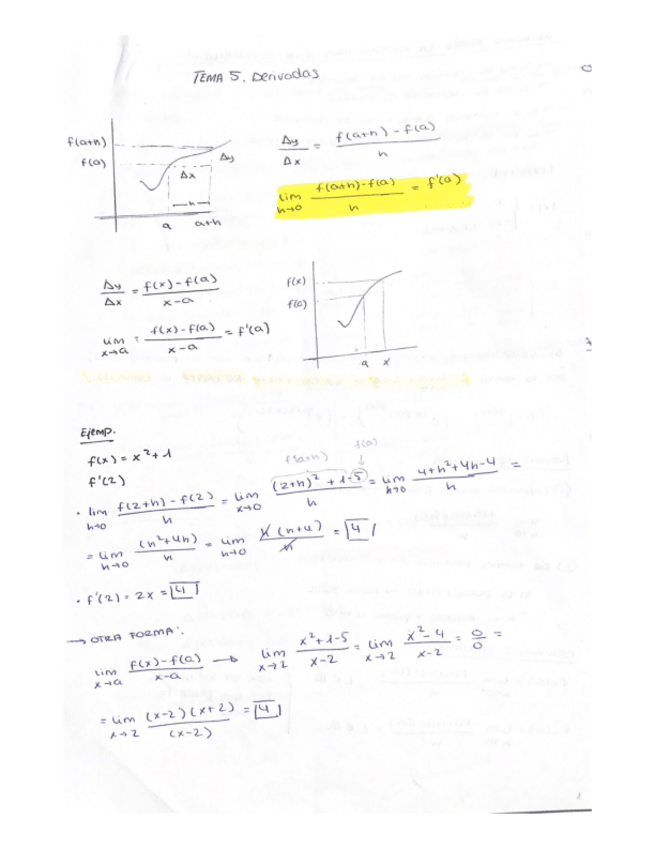 TEMA 5. Derivadas
f(a+h)
f(a)
Δy
Δx
h
a a+h
Δy/Δx = (f(a+h) - f(a))/h
lim h→0 (f(a+h)-f(a))/h = f'(a)
Δy/Δx = (f(x)-f(a))/(x-a)
lim x→a = (f(x)-f(a))/(x-a) = f'(a)
f(x)
f(a)
a x
Ejemp.
f(x) = x²+1
f'(2)
f(a+h) f(a)
· lim h→0 (f(2+h)-f(2))/h = lim x→0 ((2+h)²+1-5)/h = lim h→0 (4+h²+4h-4)/h =
= lim h→0 (h²+4h)/h = lim h→0 h(h+4)/h = 4
· f'(2) = 2x = 4
→ OTRA FORMA:
lim x→a (f(x)-f(a))/(x-a) → lim x→2 (x²+1-5)/(x-2) = lim x→2 (x²-4)/(x-2) = 0/0 =
= lim x→2 (x-2)(x+2)/(x-2) = 4
1